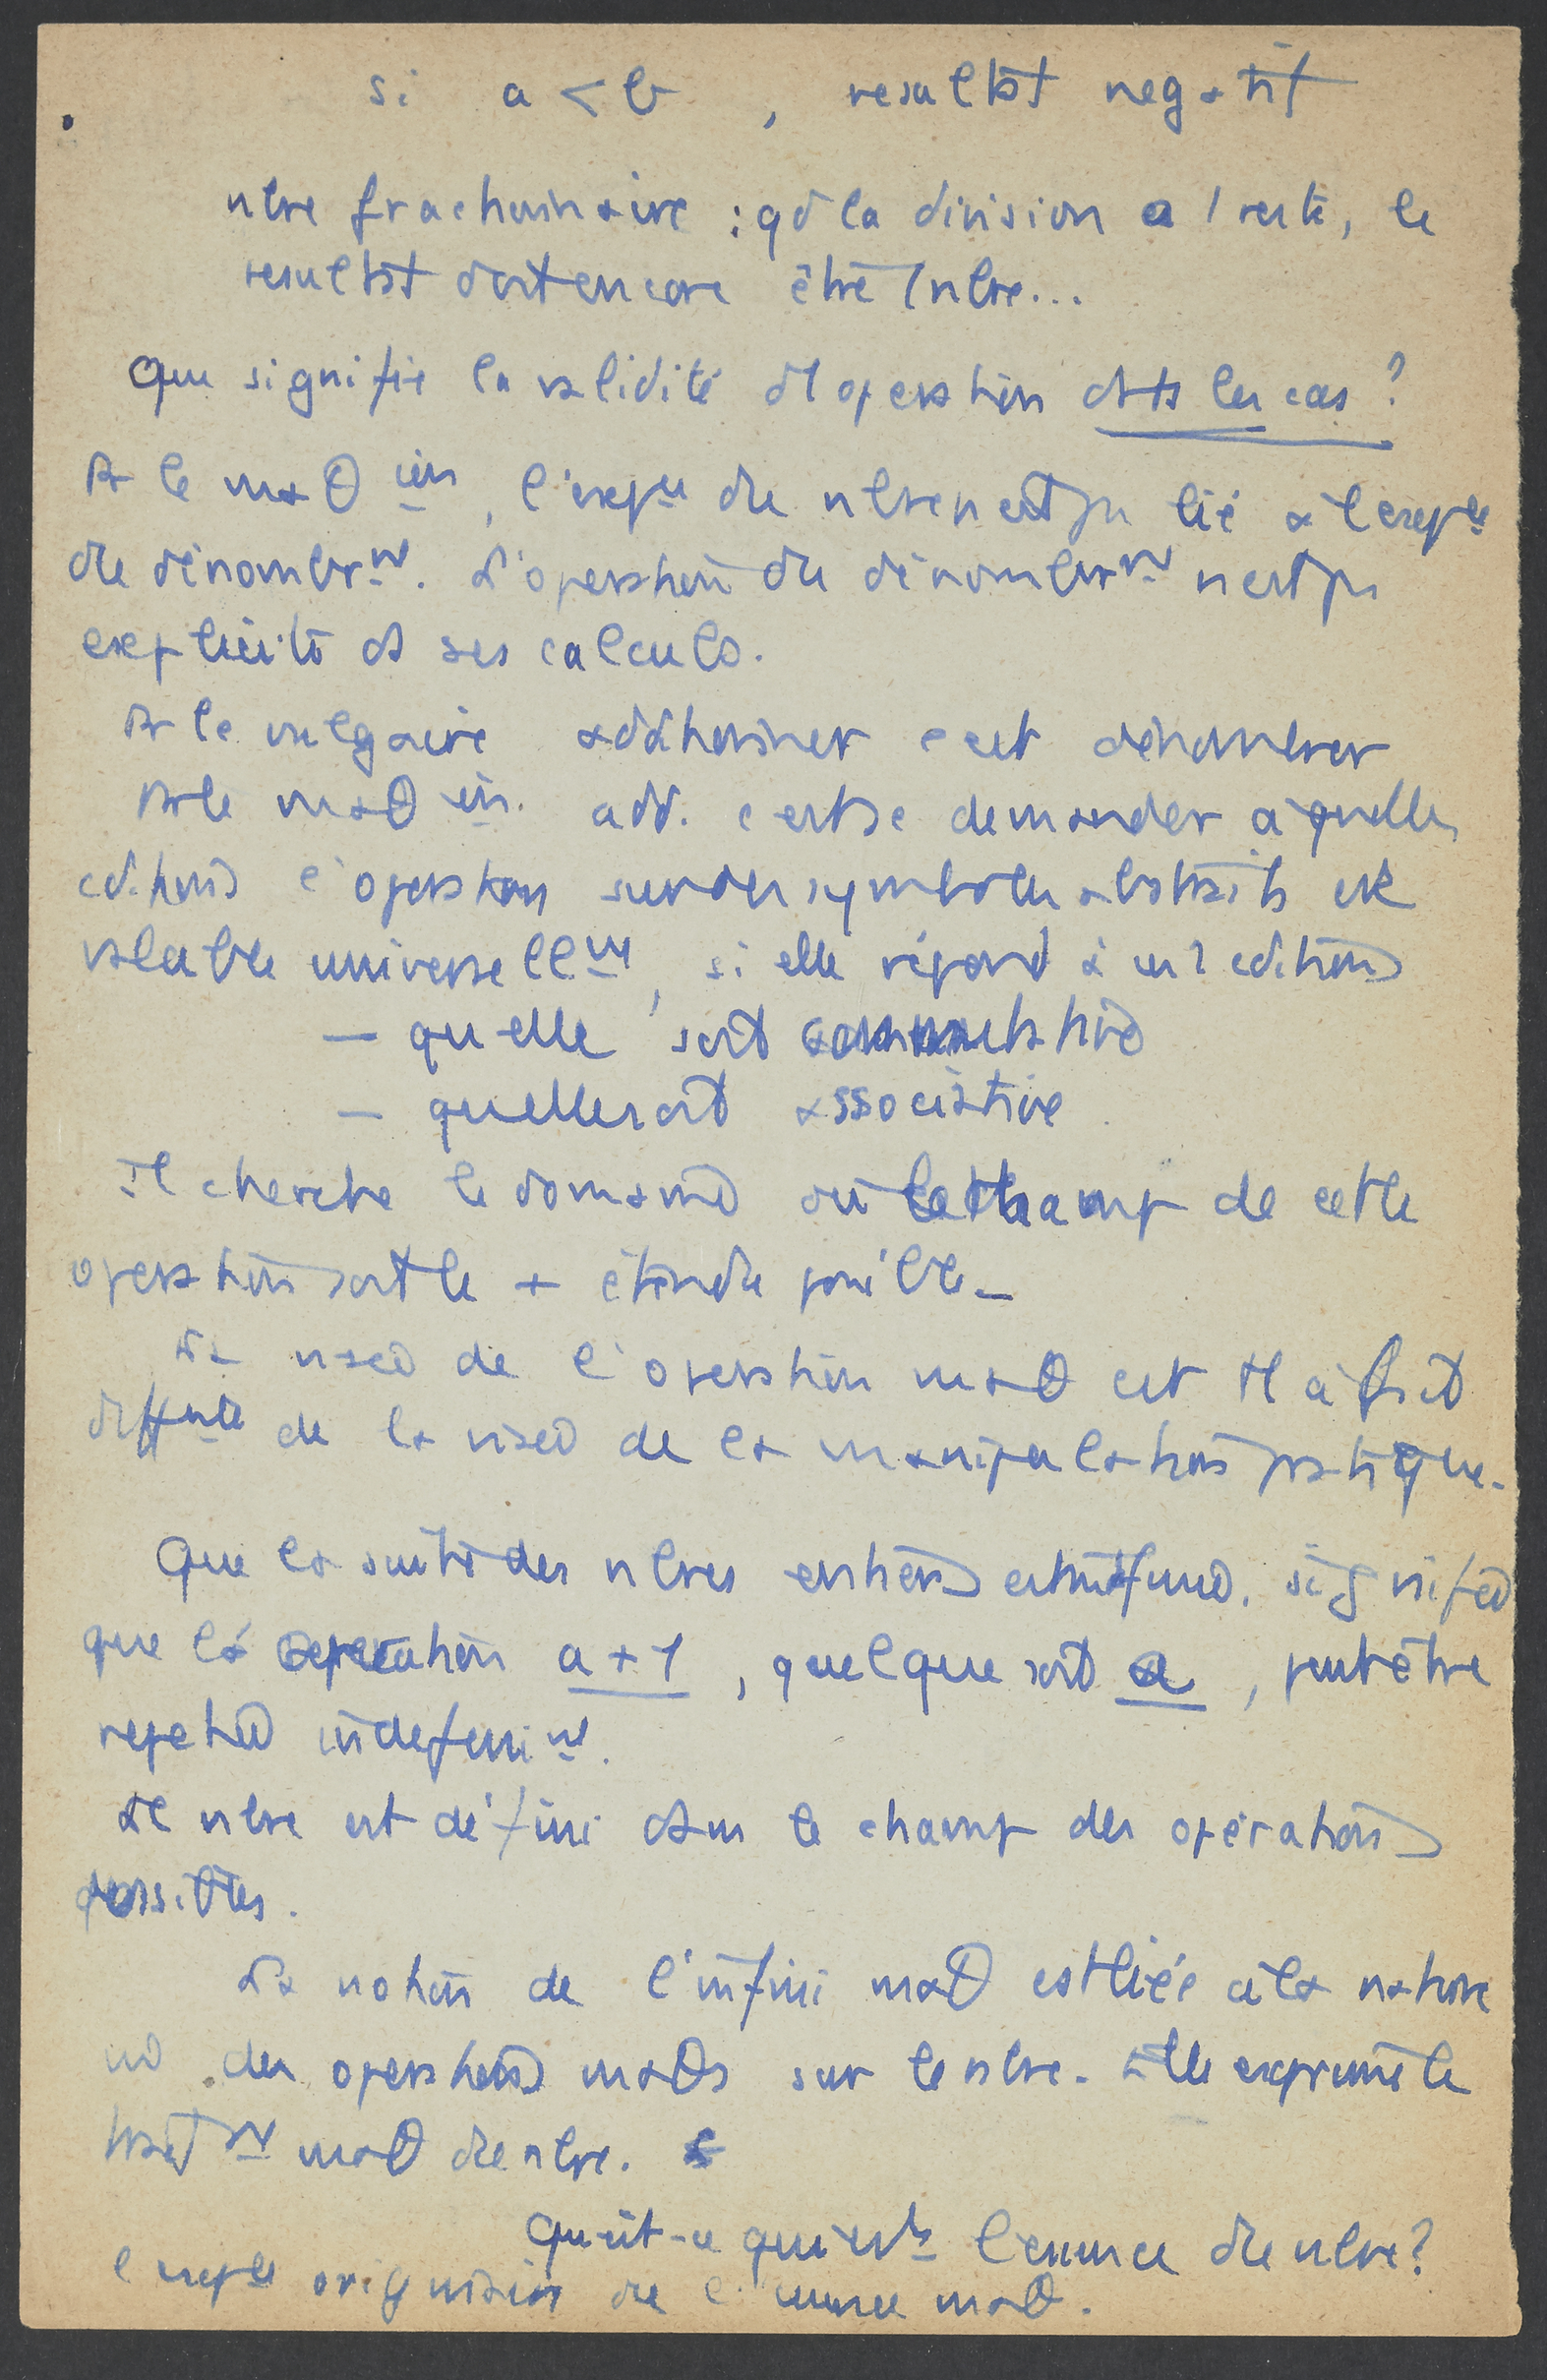 si a < b , resultat negatif
nbre fractionnaire : qd la division a 1 reste, le
resultat doit encore être 1 nbre...
Que signifie la validité d1 operation ds ts les cas ?
Pr le maθ ien, l'exp ce du nbre n est pas lié à l exp ce
du dénombr mt. L'operation du dénombr mt n est pas
explicité ds ses calculs.
Pr le vulgaire additionner c est dénombrer
Pr le maθ ien. add. c est se demander à quelles
cditions l'operation sur des symboles abstraits est
valable universell mt, si elle répond à cditions
— qu elle soit commutative
— qu elle soit associative
Il cherche le domaine où le champ de cette
operation soit le + étendu possible_
La visée de l'operation maθ est tt à fait
diff nte de la visée de la manipulation pratique.
Que la suite des nbres entiers est infinie. signifie
que la operation a + 1 , quelque soit a , peut être
repetée indefini mt.
Le nbre est défini dans le champ des opérations
possibles.
La notion de l'infini maθ est liée à la nature
des operations maθs sur le nbre. Elle exprime le
mt maθ du nbre.
Qu est-ce qui l'essence du nbre ?
l exp ce originaire de l' maθ.